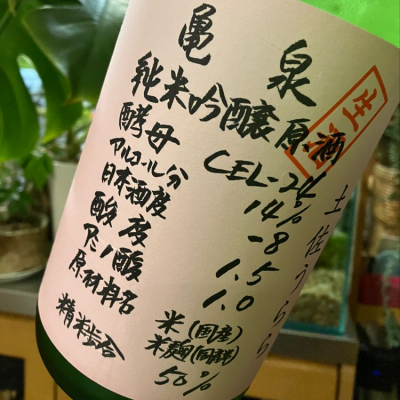 亀泉
純米吟醸原酒
生酒
酵母 CEL-24
アルコール分 14%
日本酒度 -8
酸度 1.5
アミノ酸 1.0
原材料名 米(国産)
米麹(国産米)
精米歩合 50%
土佐うらら